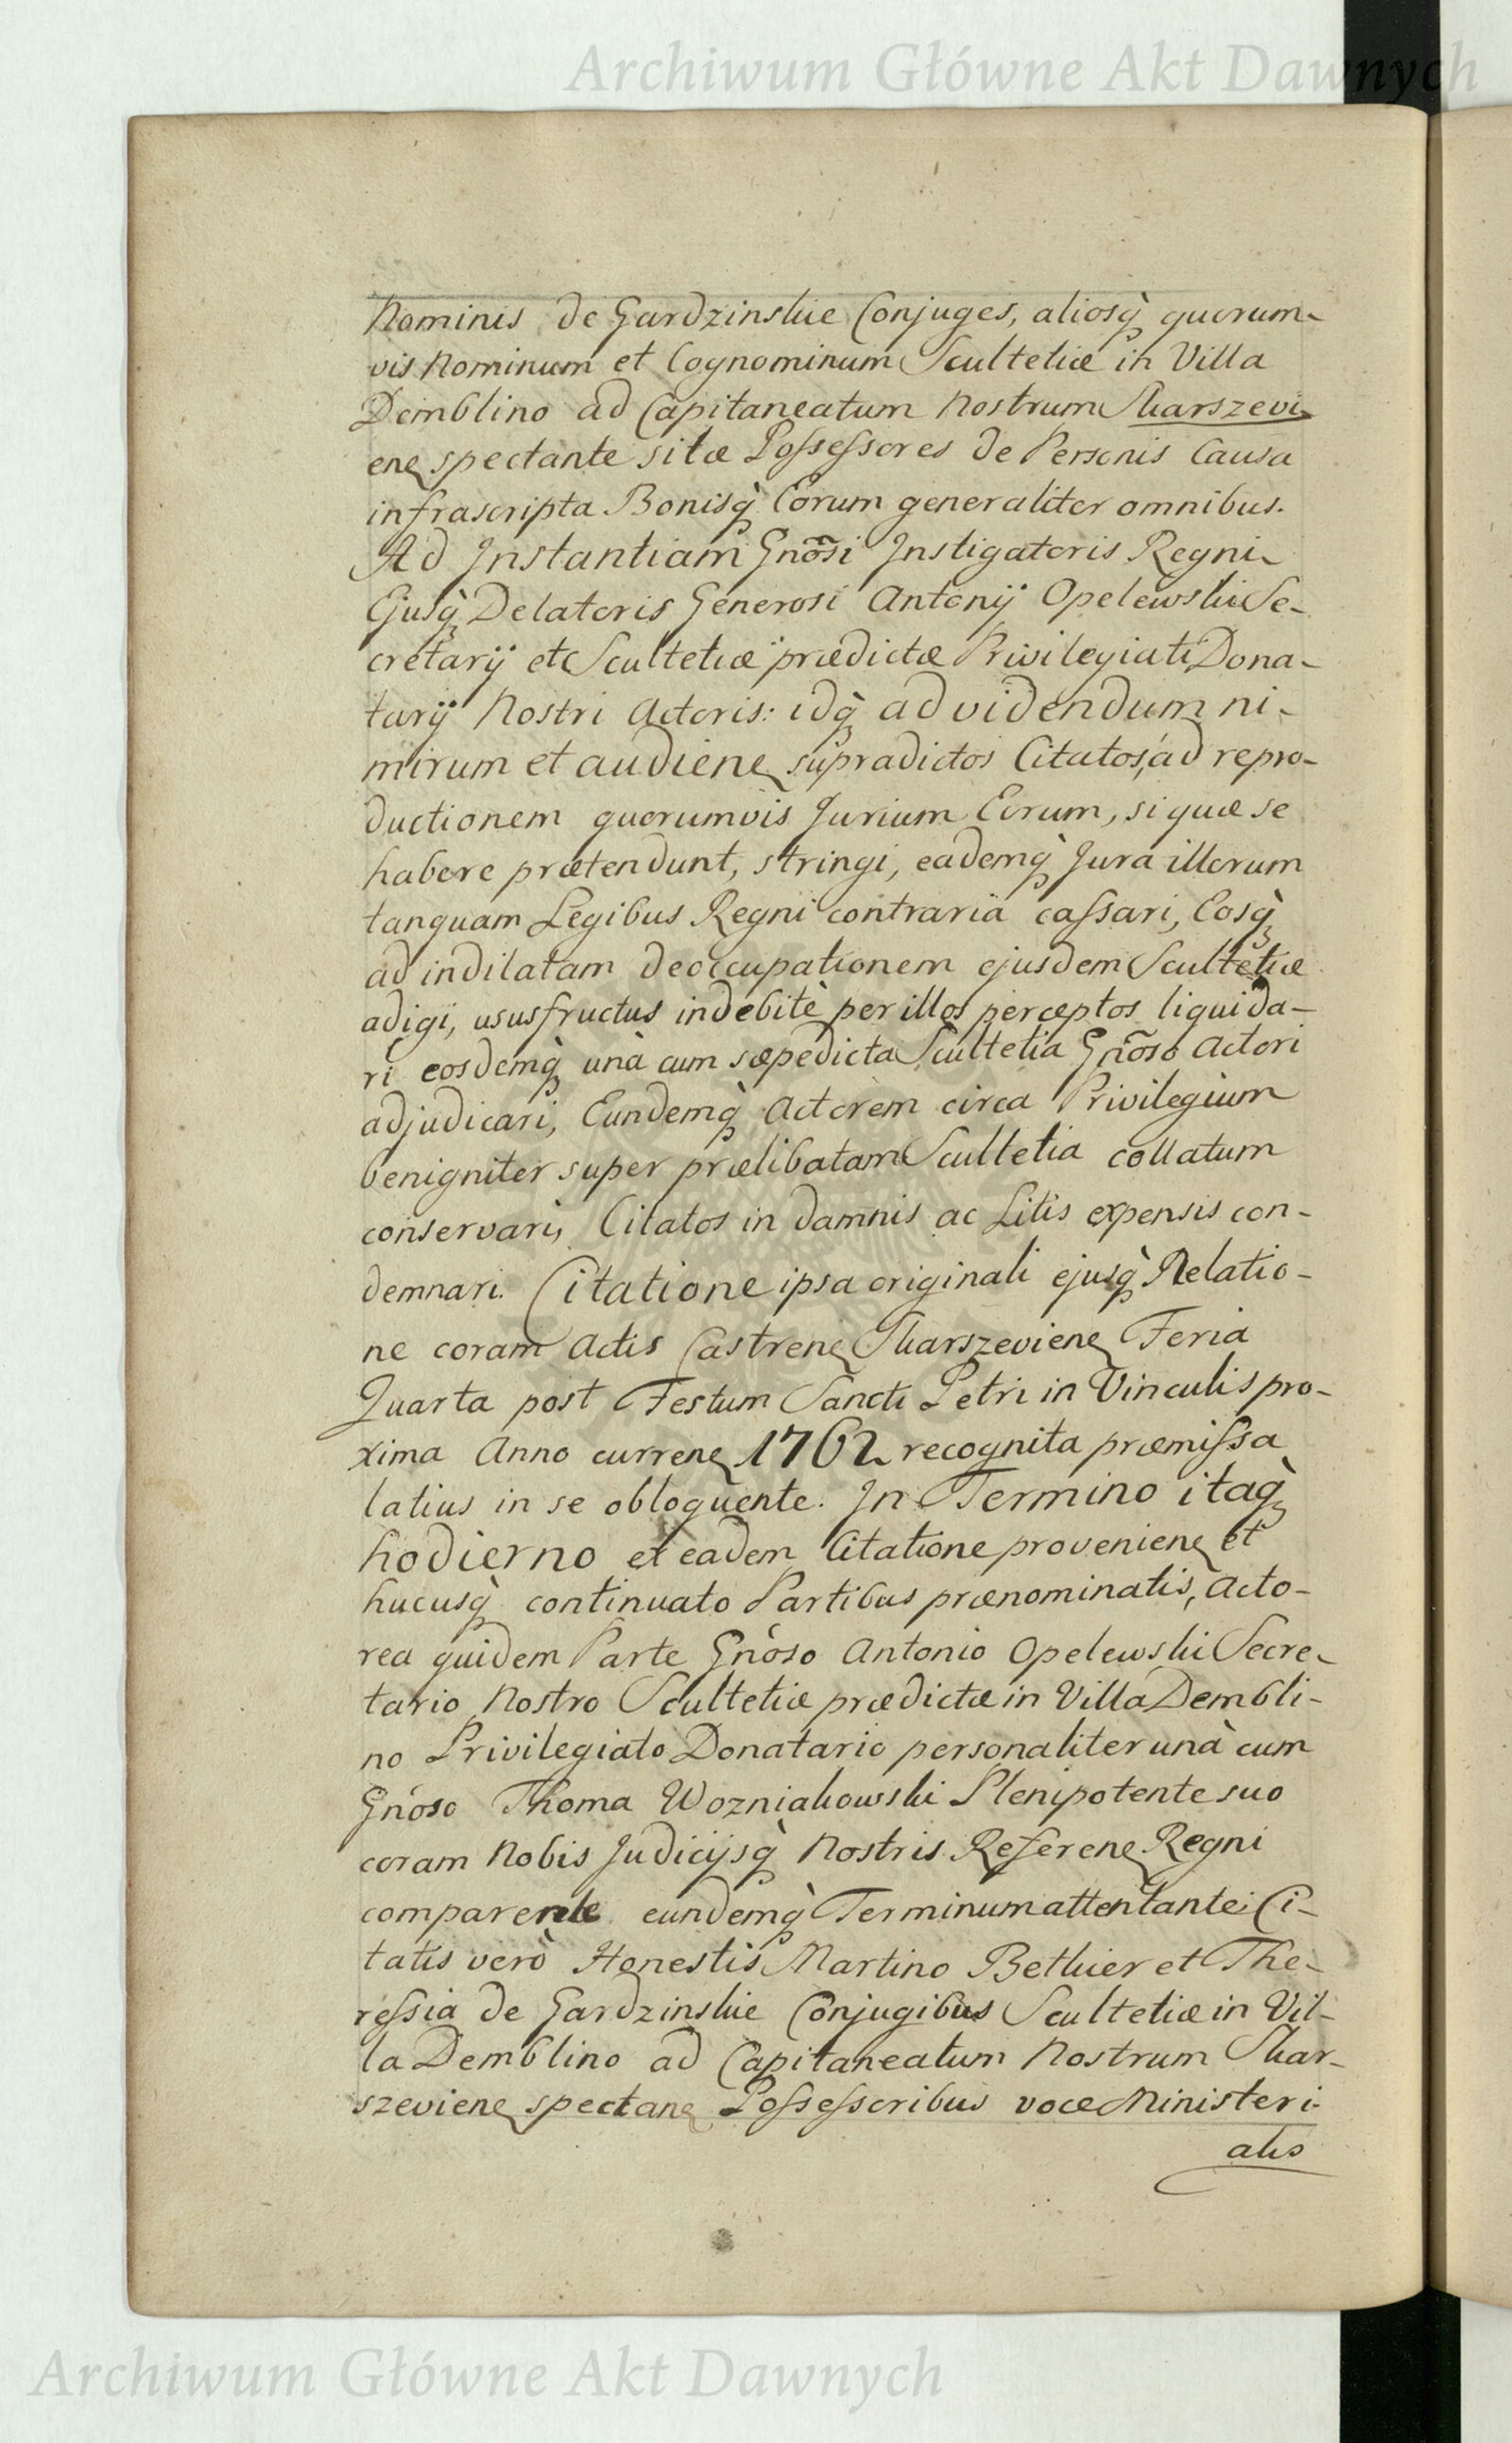 Archiwum Główne Akt Dawnych
Nominis de Gardzinskie Conjuges, aliosq̀ quorum-
vis Nominum et Cognominum Scultetiæ in Villa
Demblino ad Capitaneatum Nostrum Skarszevi-
enę spectante sitæ Possessores de Personis Causa
infrascripta Bonisq̀ Eorum generaliter omnibus.
Ad Instantiam Gnõsi Instigatoris Regni
Ejusq̀ Delatoris Generosi Antonij Opelewski Se-
cretarij et Scultetiæ prædictæ Privilegiati Dona-
tarij Nostri Actoris: idq̀ ad videndum ni-
mirum et audienę supradictos Citatos, ad repro-
ductionem quorumvis Jurium Eorum, si quæ se
habere prætendunt, stringi, eademq̀ Jura illorum
tanquam Legibus Regni contraria cassari, Eosq̀
ad indilatam deoccupationem ejusdem Scultetiæ
adigi, ususfructus indebitè per illos perceptos liquida-
ri eosdemq̀ unà cum sæpedicta Scultetia Gnõso Actori
adjudicari, Eundemq̀ Actorem circa Privilegium
benigniter super prælibatam Scultetia collatum
conservari, Citatos in damnis ac Litis expensis con-
demnari. Citatione ipsa originali ejusq̀ Relatio-
ne coram Actis Castrenę Skarszevienę Feria
Quarta post Festum Sancti Petri in Vinculis pro-
xima Anno currenę 1762 recognita præmissa
latius in se obloquente. In Termino itaq̀
hodierno ex eadem Citatione provenienę et
hucusq̀ continuato Partibus prænominatis, Acto-
rea quidem Parte Gnóso Antonio Opelewski Secre-
tario Nostro Scultetiæ prædictæ in Villa Dembli-
no Privilegiato Donatario personaliter unà cum
Gnóso Thoma Wozniakowski Plenipotente suo
coram Nobis Judicijsq̀ Nostris Referenę Regni
comparente eundemq̀ Terminum attentante; Ci-
tatis verò Honestis Martino Betkier et The-
ressia de Gardzinskie Conjugibus Scultetiæ in Vil-
la Demblino ad Capitaneatum Nostrum Skar-
szevienę spectanę Possessoribus voce Ministeri-
alis
Archiwum Główne Akt Dawnych